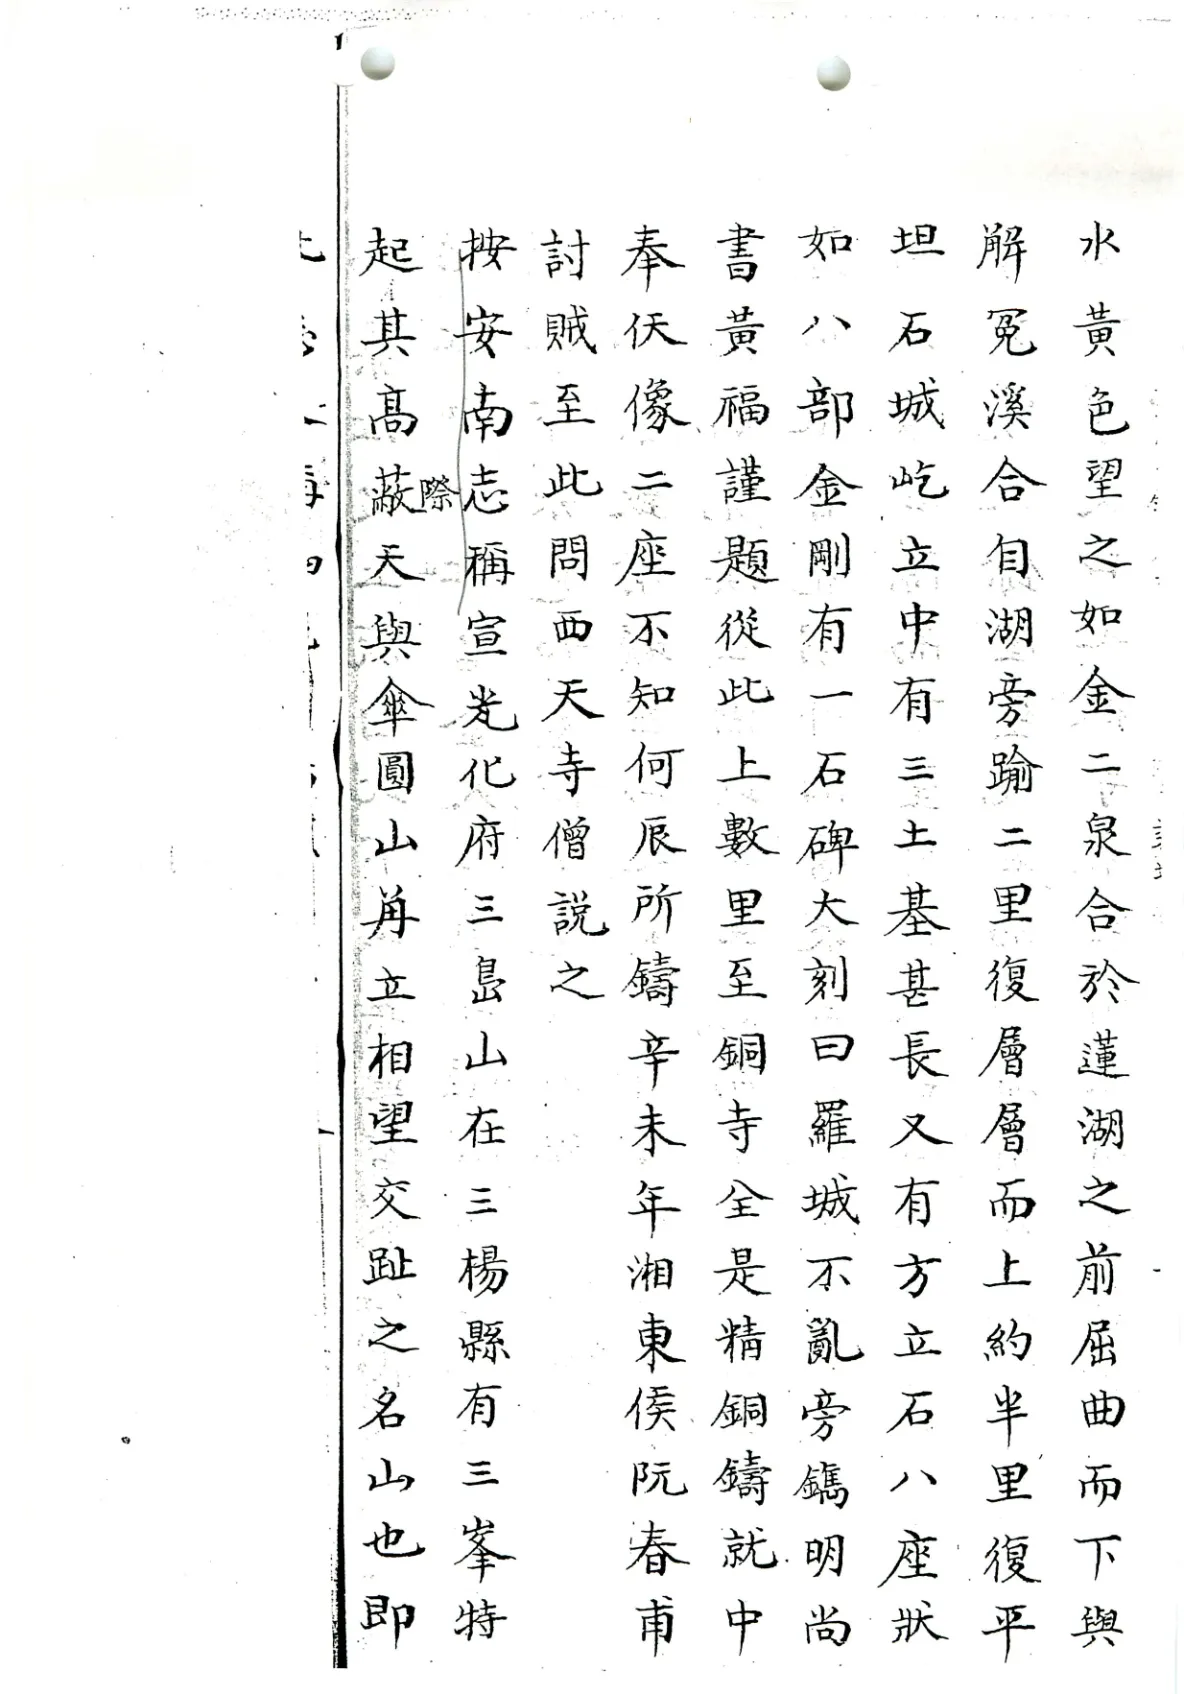 水黃色望之如金二泉合於蓮湖之前屈曲而下與
解冤溪合自湖旁踰二里復層層而上約半里復平
坦石城屹立中有三土基甚長又有方立石八座狀
如八部金剛有一石碑大刻曰羅城不亂旁鐫明尚
書黃福謹題從此上數里至銅寺全是精銅鑄就中
奉仸像二座不知何辰所鑄辛未年湘東侯阮春甫
討賊至此問西天寺僧説之
按安南志稱宣光化府三島山在三楊縣有三峯特
際
起其高蔽天與傘圓山苒立相望交趾之名山也即